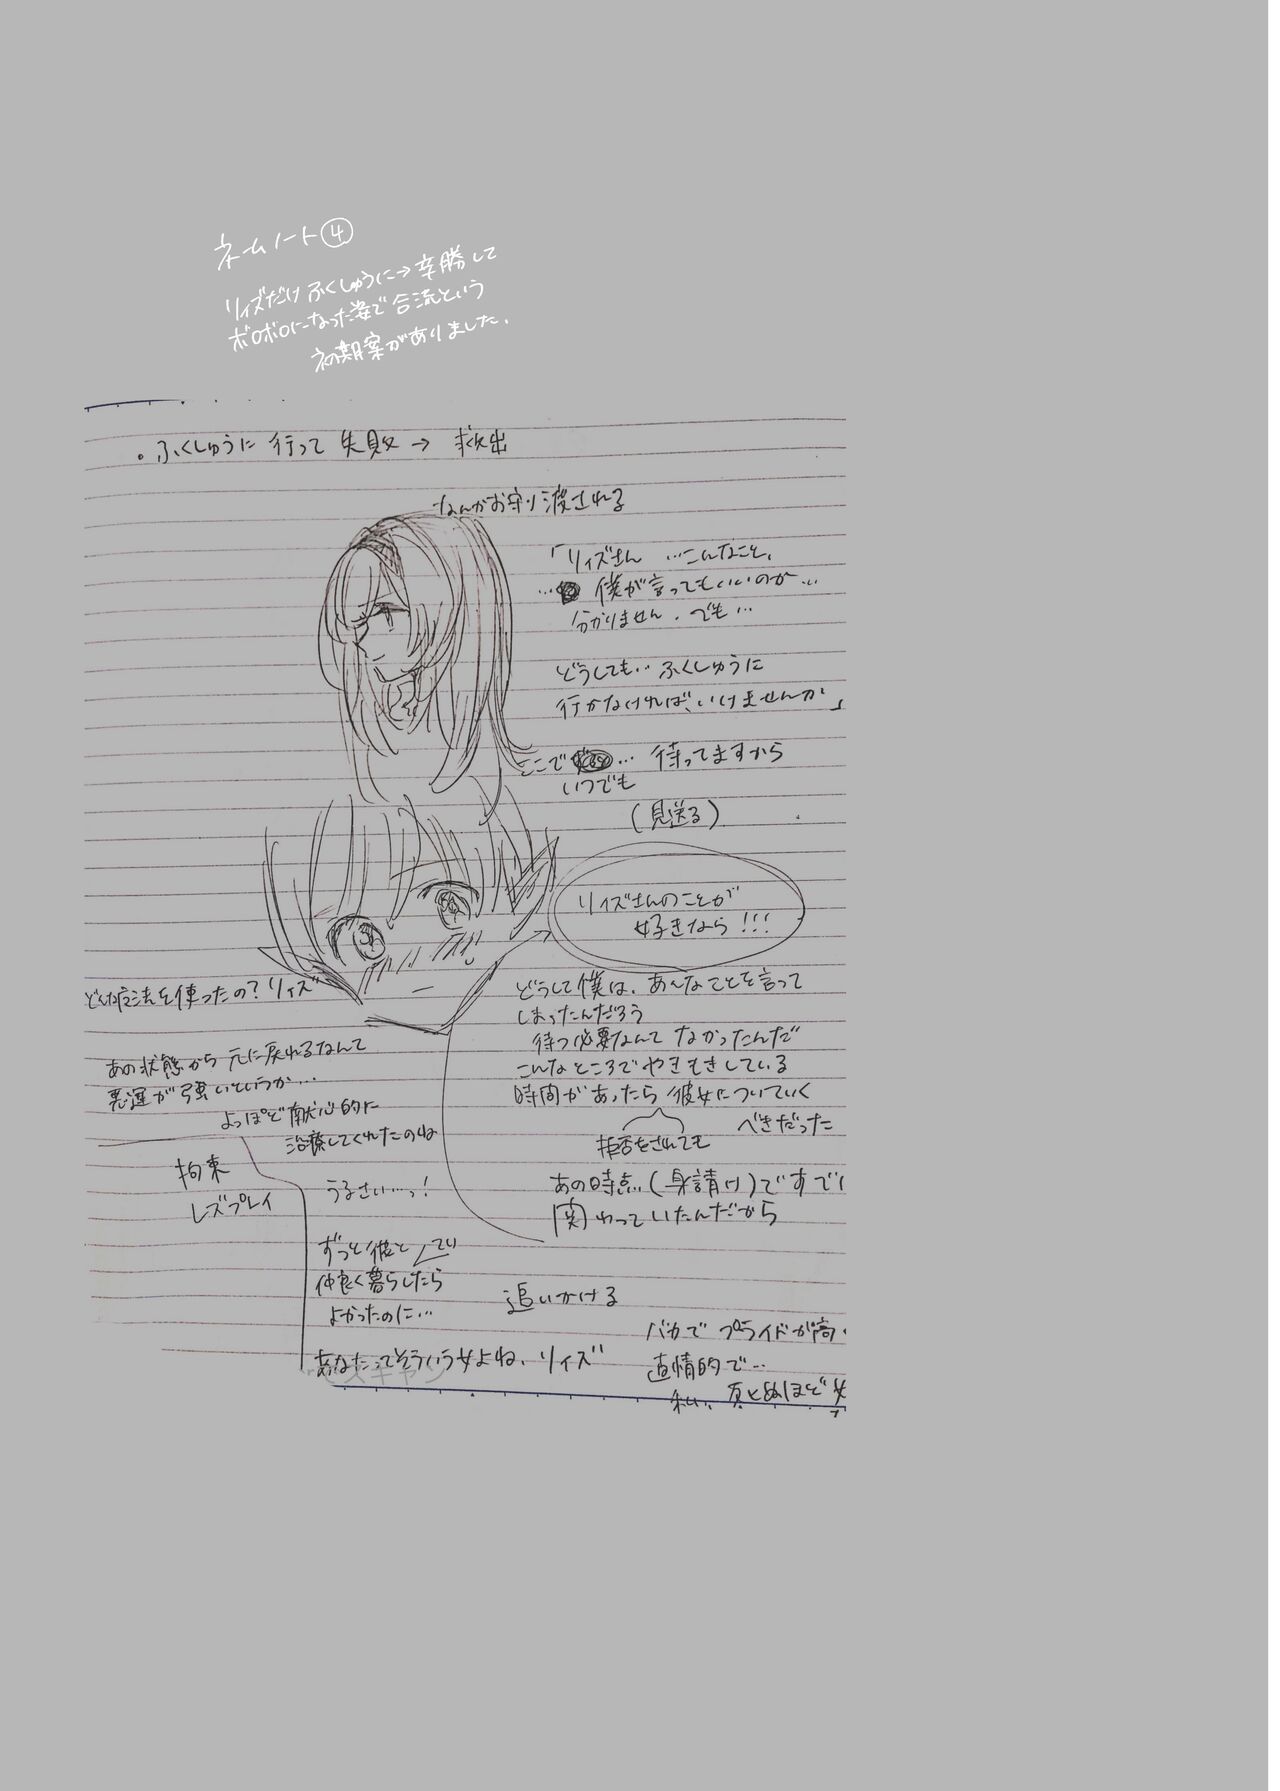 ネームノート④
リィズだけふくしゅうに→辛勝して
ボロボロになった姿で合流という
初期案がありました.
。ふくしゅうに行って失敗→救出
なんかお守り渡される
「リィズさん …こんなこと、
… 僕が言ってもいいのか…
分かりません. でも…
どうしても… ふくしゅうに
行かなければ、いけませんか」
ここで … 待ってますから
いつでも
(見送る)
リィズさんのことが
好きなら!!!
どうして僕は、あんなことを言って
しまったんだろう
待つ必要なんて なかったんだ
こんなところでやきもきしている
時間があったら彼女についていく
べきだった
拒否をされても
あの時点(身請け)ですでに
関わっていたんだから
追いかける
どんな療法を使ったの?リィズ
あの状態から元に戻れるなんて
悪運が強いというか…
よっぽど献心的に
治療してくれたのね
拘束
レズプレイ
うるさい…っ!
ずっと彼と
仲良く暮らしたら
よかったのに…
あなたってそういう女よね、リィズ
バカで プライドが高
直情的で…
私..